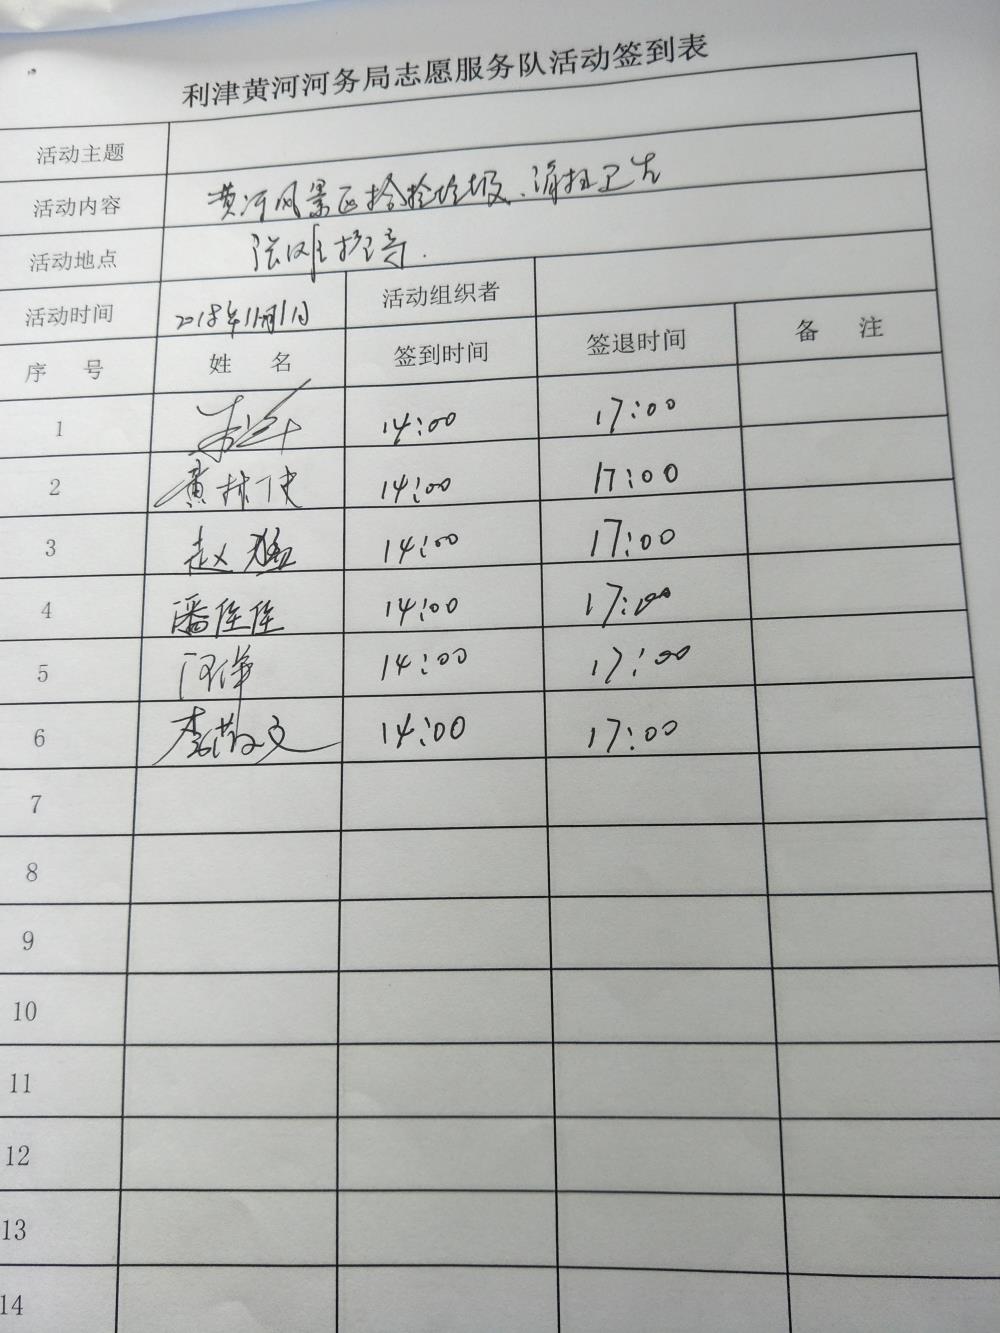 利津黄河河务局志愿服务队活动签到表
活动主题
活动内容 黄河风景区捡拾垃圾、清扫卫生
活动地点 张滩
活动时间 2018年11月1日 活动组织者
序 号 姓 名 签到时间 签退时间 备 注
1 14:00 17:00
2 黄 14:00 17:00
3 赵猛 14:00 17:00
4 潘佳佳 14:00 17:00
5 14:00 17:00
6 李 文 14:00 17:00
7
8
9
10
11
12
13
14